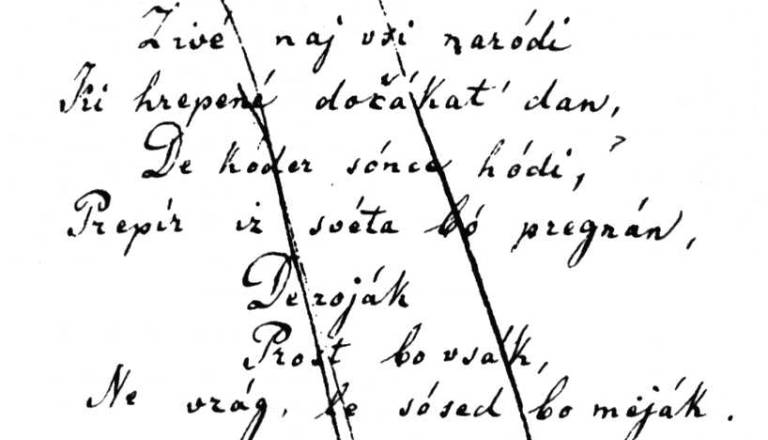 Živé naj vsi naródi
Ki hrepené dočákat' dan,
De kóder sónce hódi,
Prepír iz svéta bó pregnán,
De roják
Prost bo vsák,
Ne vrág, le sósed bo meják.